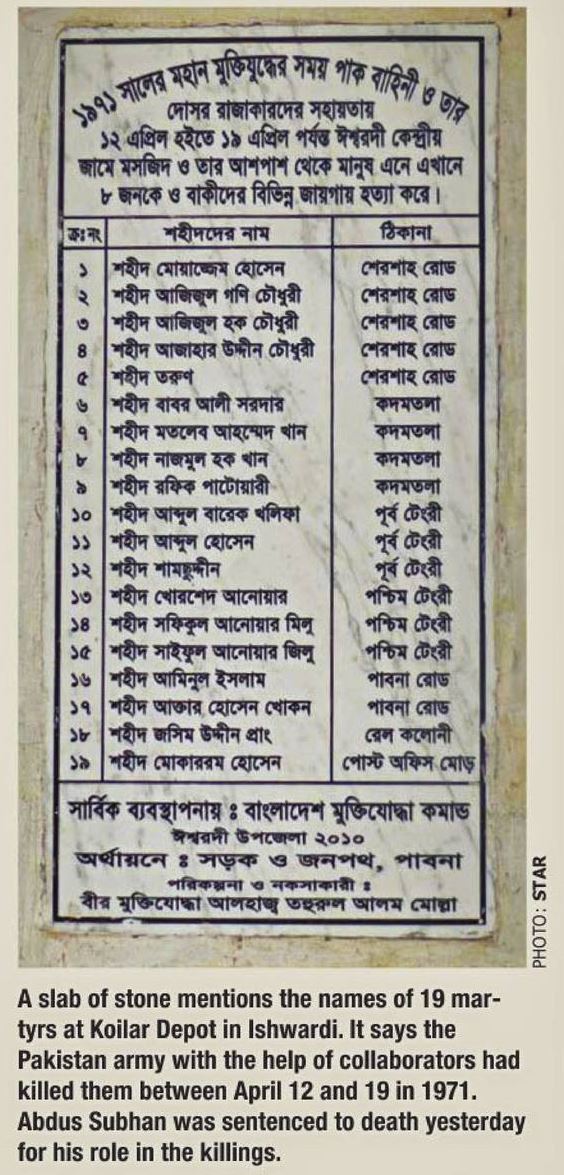 ১৯৭১ সালের মহান মুক্তিযুদ্ধের সময় পাক বাহিনী ও তার
দোসর রাজাকারদের সহায়তায়
১২ এপ্রিল হইতে ১৯ এপ্রিল পর্যন্ত ঈশ্বরদী কেন্দ্রীয়
জামে মসজিদ ও তার আশপাশ থেকে মানুষ এনে এখানে
৮ জনকে ও বাকীদের বিভিন্ন জায়গায় হত্যা করে।
ক্রঃনং শহীদদের নাম ঠিকানা
১ শহীদ মোয়াজ্জেম হোসেন শেরশাহ রোড
২ শহীদ আজিজুল গণি চৌধুরী শেরশাহ রোড
৩ শহীদ আজিজুল হক চৌধুরী শেরশাহ রোড
৪ শহীদ আজাহার উদ্দীন চৌধুরী শেরশাহ রোড
৫ শহীদ তরুণ শেরশাহ রোড
৬ শহীদ বাবর আলী সরদার কদমতলা
৭ শহীদ মতলেব আহম্মেদ খান কদমতলা
৮ শহীদ নাজমুল হক খান কদমতলা
৯ শহীদ রফিক পাটোয়ারী কদমতলা
১০ শহীদ আব্দুল বারেক খলিফা পূর্ব টেংরী
১১ শহীদ আব্দুল হোসেন পূর্ব টেংরী
১২ শহীদ শামছুদ্দীন পূর্ব টেংরী
১৩ শহীদ খোরশেদ আনোয়ার পশ্চিম টেংরী
১৪ শহীদ সফিকুল আনোয়ার মিলু পশ্চিম টেংরী
১৫ শহীদ সাইফুল আনোয়ার জিলু পশ্চিম টেংরী
১৬ শহীদ আমিনুল ইসলাম পাবনা রোড
১৭ শহীদ আক্তার হোসেন খোকন পাবনা রোড
১৮ শহীদ জসিম উদ্দীন প্রাং রেল কলোনী
১৯ শহীদ মোকাররম হোসেন পোস্ট অফিস মোড়
সার্বিক ব্যবস্থাপনায় ঃ বাংলাদেশ মুক্তিযোদ্ধা কমান্ড
ঈশ্বরদী উপজেলা ২০১০
অর্থায়নে ঃ সড়ক ও জনপথ, পাবনা
পরিকল্পনা ও নকসাকারী ঃ
বীর মুক্তিযোদ্ধা আলহাজ্ব তহুরুল আলম মোল্লা
PHOTO: STAR
A slab of stone mentions the names of 19 mar-
tyrs at Koilar Depot in Ishwardi. It says the
Pakistan army with the help of collaborators had
killed them between April 12 and 19 in 1971.
Abdus Subhan was sentenced to death yesterday
for his role in the killings.